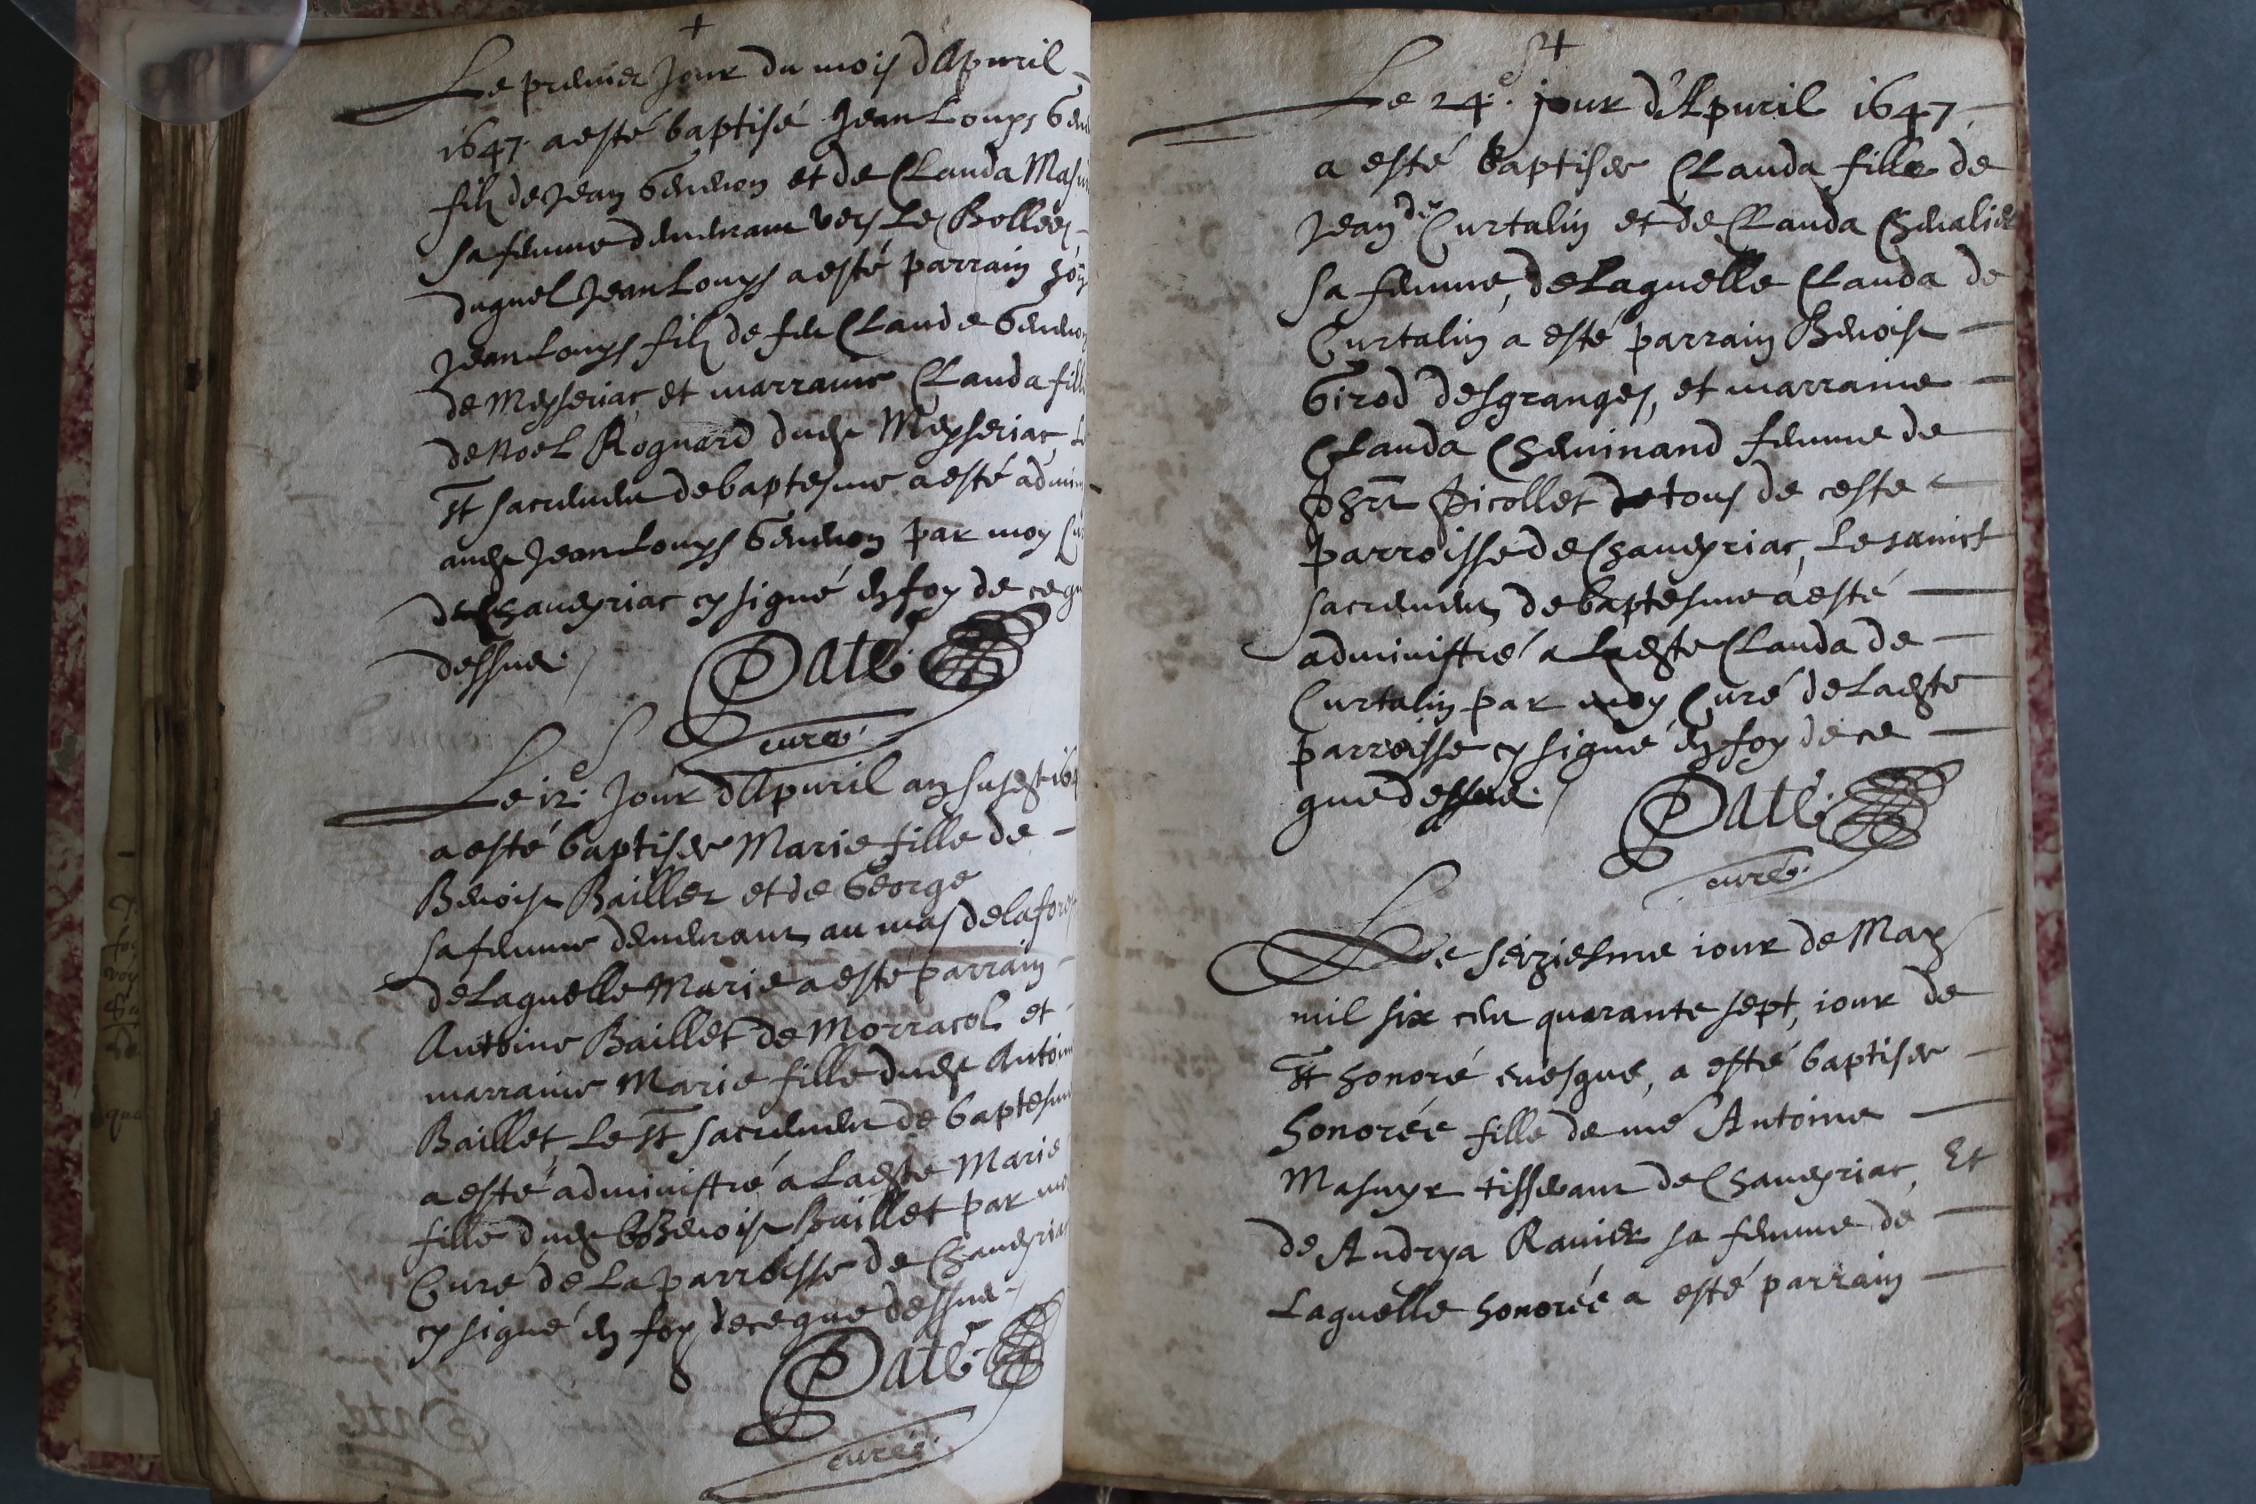 Le premier Jour du mois d'Apuril
1647. a esté baptisé Jean Louys
filz de Jean Genenon et de Clauda
sa femme demeurant vers Les Bollees
duquel Jean Louys a esté parrain
Jean Louys filz de feu Claude
de Meysseriac et marraine Clauda
de Noel Rognard dudt Meysseriac
St sacrement de baptesme a esté
audt Jean Louys Genenon par moy
de Chaueyriac cy signé en foy de ce
dessus.
Daté
curé.
Le 12e. Jour d'Apuril an susdt
a esté baptisee Marie fille de
Benoist Baillet et de George
sa femme demeurant au mas de la
de Laquelle Marie a esté parrain
Antoine Baillet de Morracol et
marraine Marie fille dudt
Baillet, Le St sacrement de
a esté administré a Ladte Marie
fille dudt Benoist Baillet par
Curé de La parroisse de
cy signé en foy de ce que dessus.
Daté
curé.
Le 24e. jour d'Apuril 1647
a esté baptisee Clauda fille de
Jean de Curtalin et de Clauda Cheualier
sa femme, de Laquelle Clauda de
Curtalin a esté parrain Benoist
Girod des granges, et marraine
Clauda Cheuinand femme de
Picollet de tous de ceste
parroisse de Chaueyriac, Le sainct
sacrement de baptesme a esté
administré a Ladte Clauda de
Curtalin par moy Curé de Ladte
parroisse cy signé en foy de ce
que dessus.
Daté
curé.
Le seiziesme iour de May
mil six cent quarante sept, iour de
St honoré euesque, a esté baptisee
honorée fille de me Antoine
Masuyr tisserant de Chaueyriac, Et
de Andrya Rauier sa femme de
Laquelle honorée a esté parrain